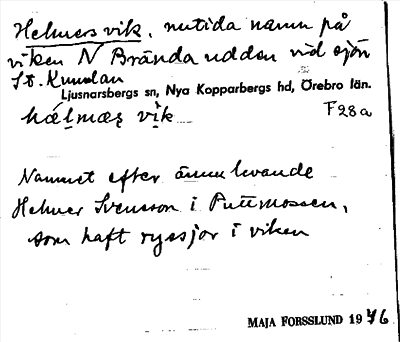 Helmersvik, nutida namn på
viken N Brändaudden vid sjön
St. Kumlan
Ljusnarsbergs sn, Nya Kopparbergs hd, Örebro län.
hǽlmæʂ vi̠k F28a
Namnet efter ännu levande
Helmer Svensson i Puttmossen,
som haft ryssjor i viken
MAJA FORSSLUND 1946.